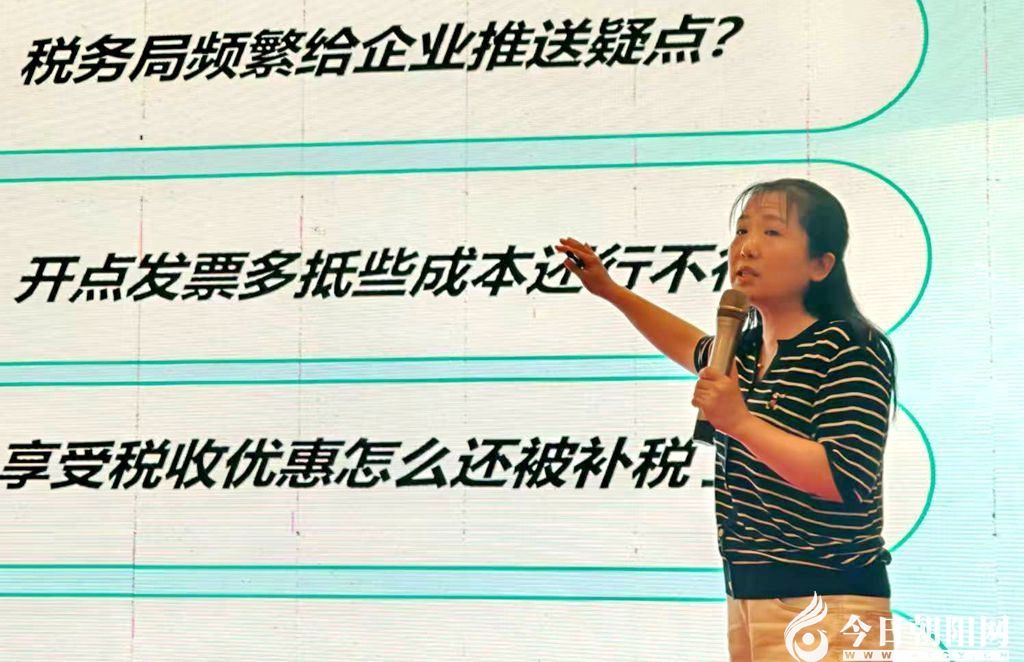 税务局频繁给企业推送疑点?
开点发票多抵些成本还行不行
享受税收优惠怎么还被补税
今日朝阳网